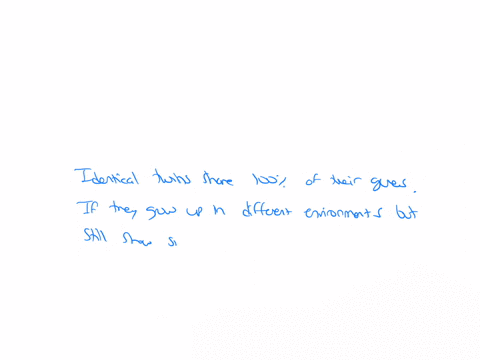 Identical twins share 100% of their genes.
If they grow up in different environments but
still show si